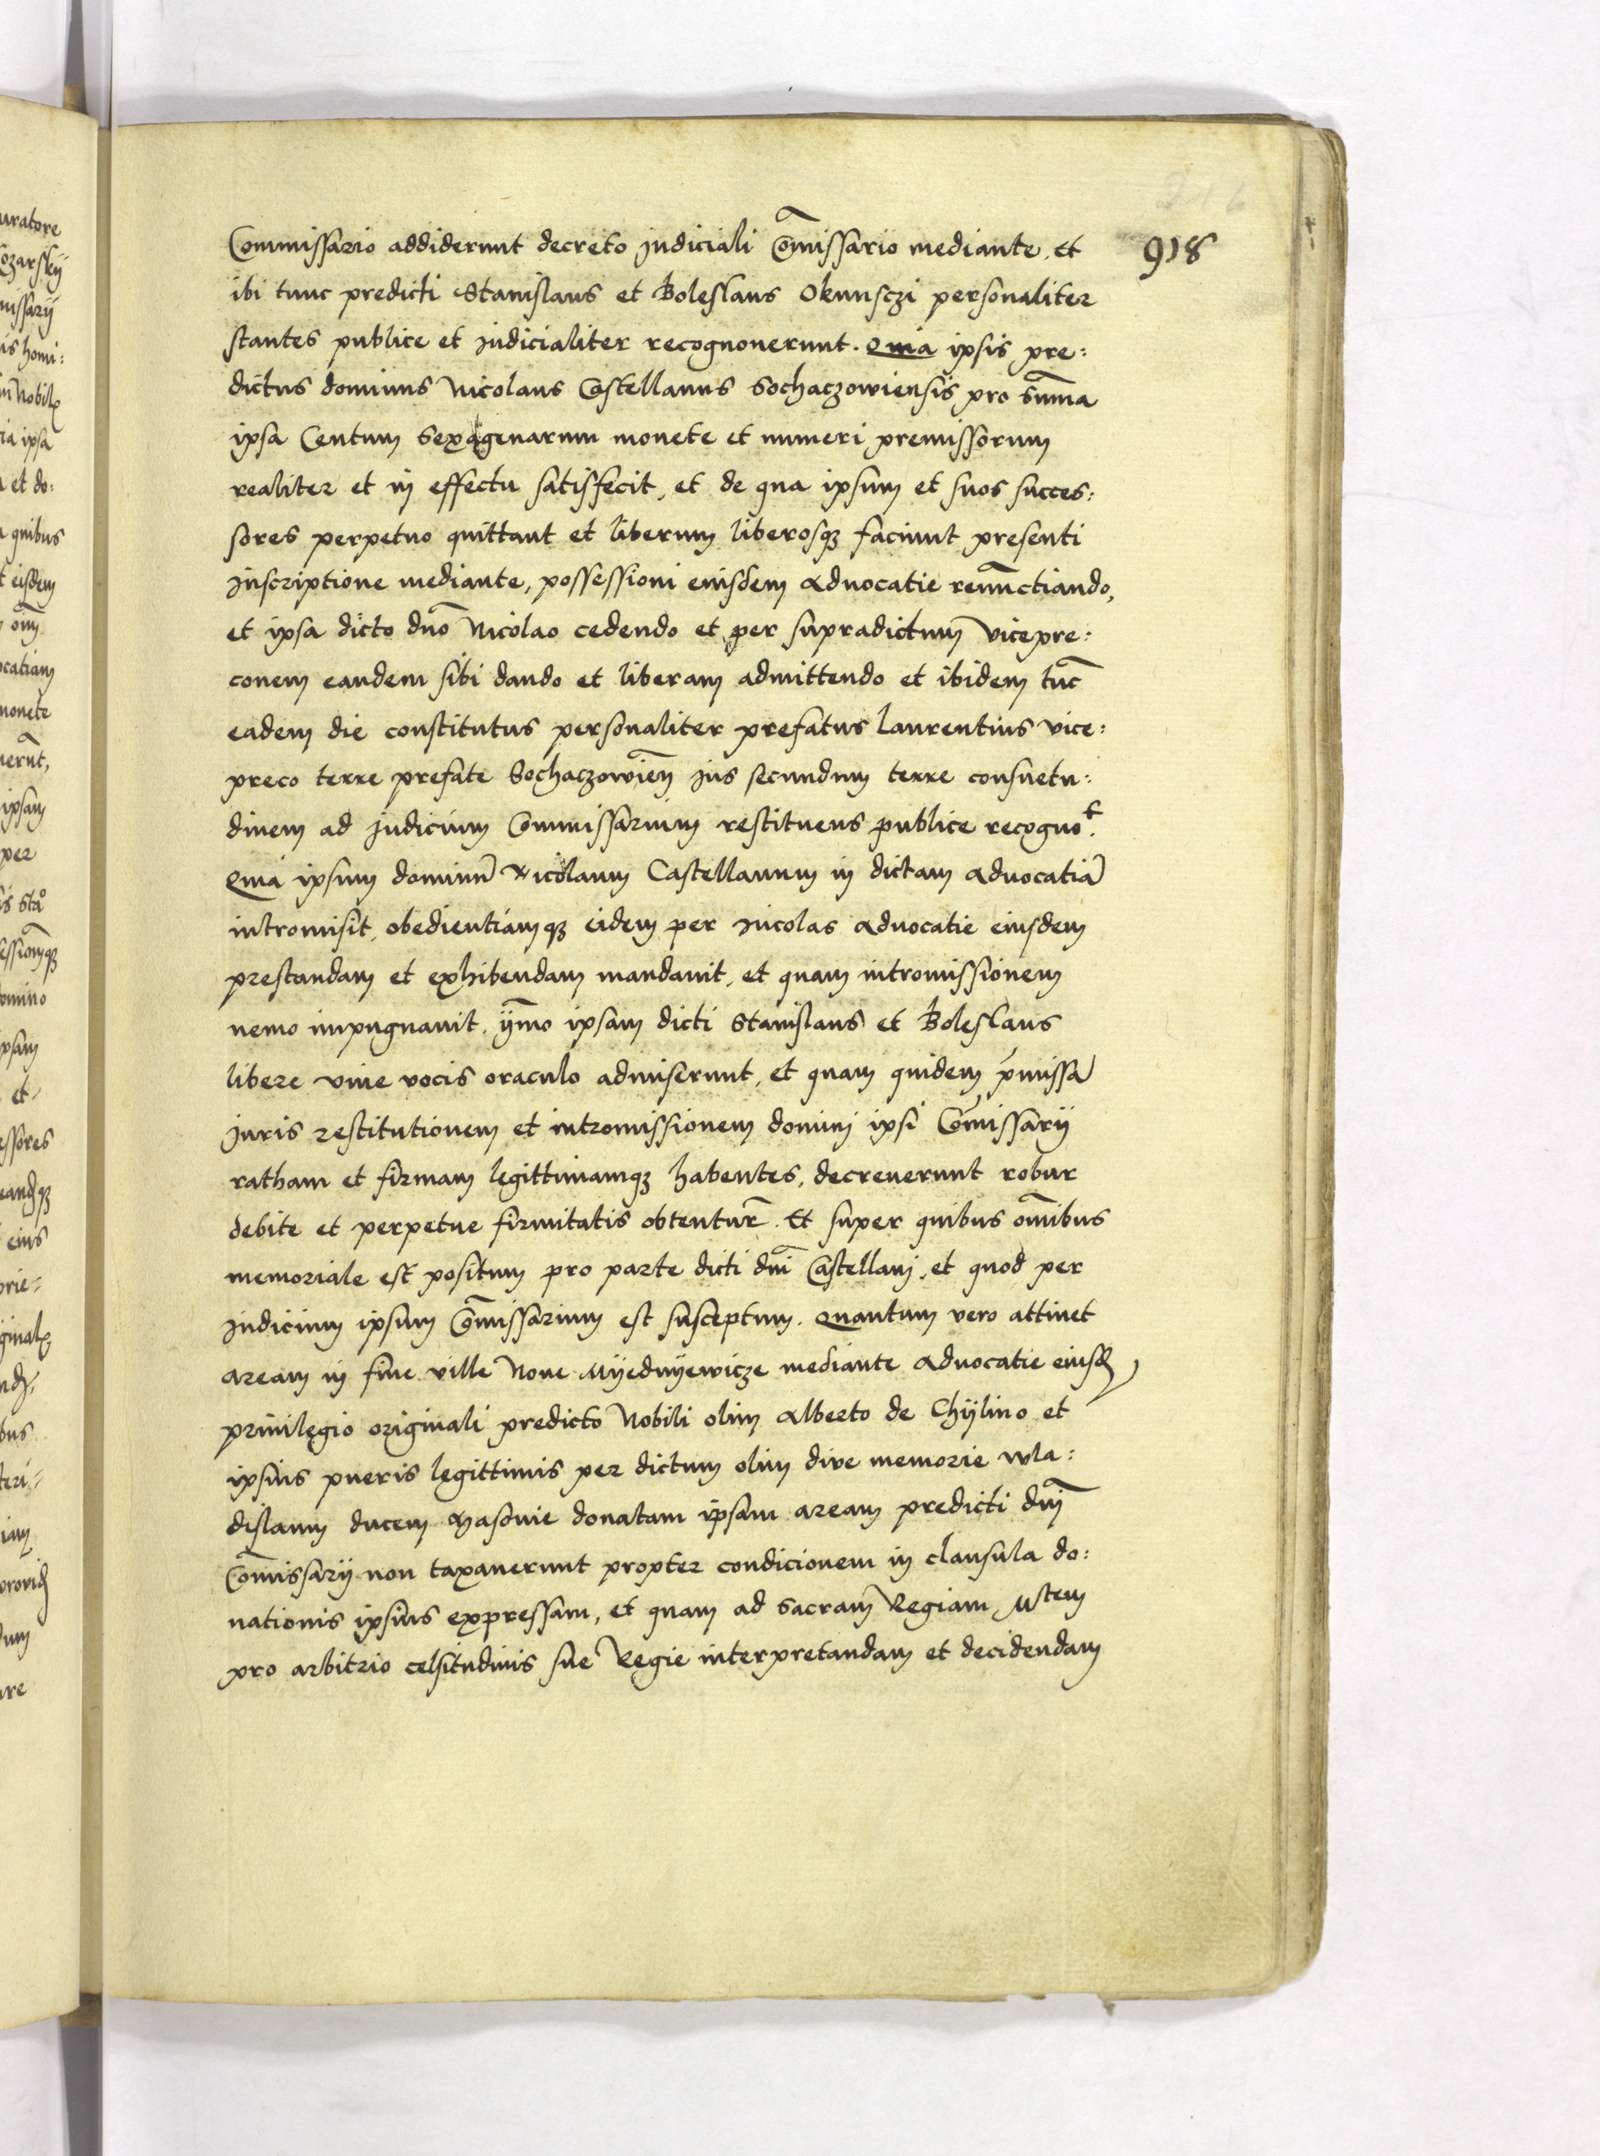 918
Commissario addiderunt decreto judiciali Com̄issario mediante, et
ibi tunc predicti Stanislaus et Boleslaus Okunsczi personaliter
stantes publice et judicialiter recognouerunt. Quia ipsis pre:
dictus dominus Nicolaus Castellanus Sochaczowiensis pro sum̄a
ipsa Centum Sexagenarum monete et numeri premissorum
realiter et in effectu satisfecit, et de qua ipsum et suos succes:
sores perpetuo quittant et liberum liberosqȝ faciunt presenti
Inscriptione mediante, possessioni eiusdem aduocatie renunc̄tiando,
et ipsa dicto dn̄o Nicolao cedendo et per supradictum vicepre:
conem eandem sibi dando et liberam admittendo et ibidem tūc
eadem die constitutus personaliter prefatus Laurentius vice:
preco terre prefate Sochaczowien̄ jus secundum terre consuetu:
dinem ad judicium Commissarium restituens publice recogno^t.
Quia ipsum dominū Nicolaum Castellanum in dictam aduocatiā
intromisit, obedientiamqȝ eidem per incolas aduocatie eiusdem
prestandam et exhibendam mandauit, et quam intromissionem
nemo impugnauit. ȳmo ipsam dicti Stanislaus et Boleslaus
libere viue vocis oraculo admiserunt, et quam quidem p̄missā
juris restitutionem et intromissionem domini ipsi Com̄issarij
ratham et firmam legittimamqȝ habentes, decreuerunt robur
debite et perpetue firmitatis obtentur̄. Et super quibus om̄ibus
memoriale est positum pro parte dicti dn̄i Castellani, et quod per
judicium ipsum Com̄issarium est susceptum. Quantum vero attinet
aream in fine ville Noue Myednyewicze mediante aduocatie eiusd̄
priuilegio originali predicto Nobili olim Alberto de Chylino et
ipsius pueris legittimis per dictum olim diue memorie wla:
dislaum ducem Masouie donatam ipsam aream predicti dn̄i
Com̄issarij non taxauerunt propter condicionem in clausula do:
nationis ipsius expressam, et quam ad Sacram̄ Regiam M^tem
pro arbitrio celsitudinis sue Regie interpretandam et decidendam